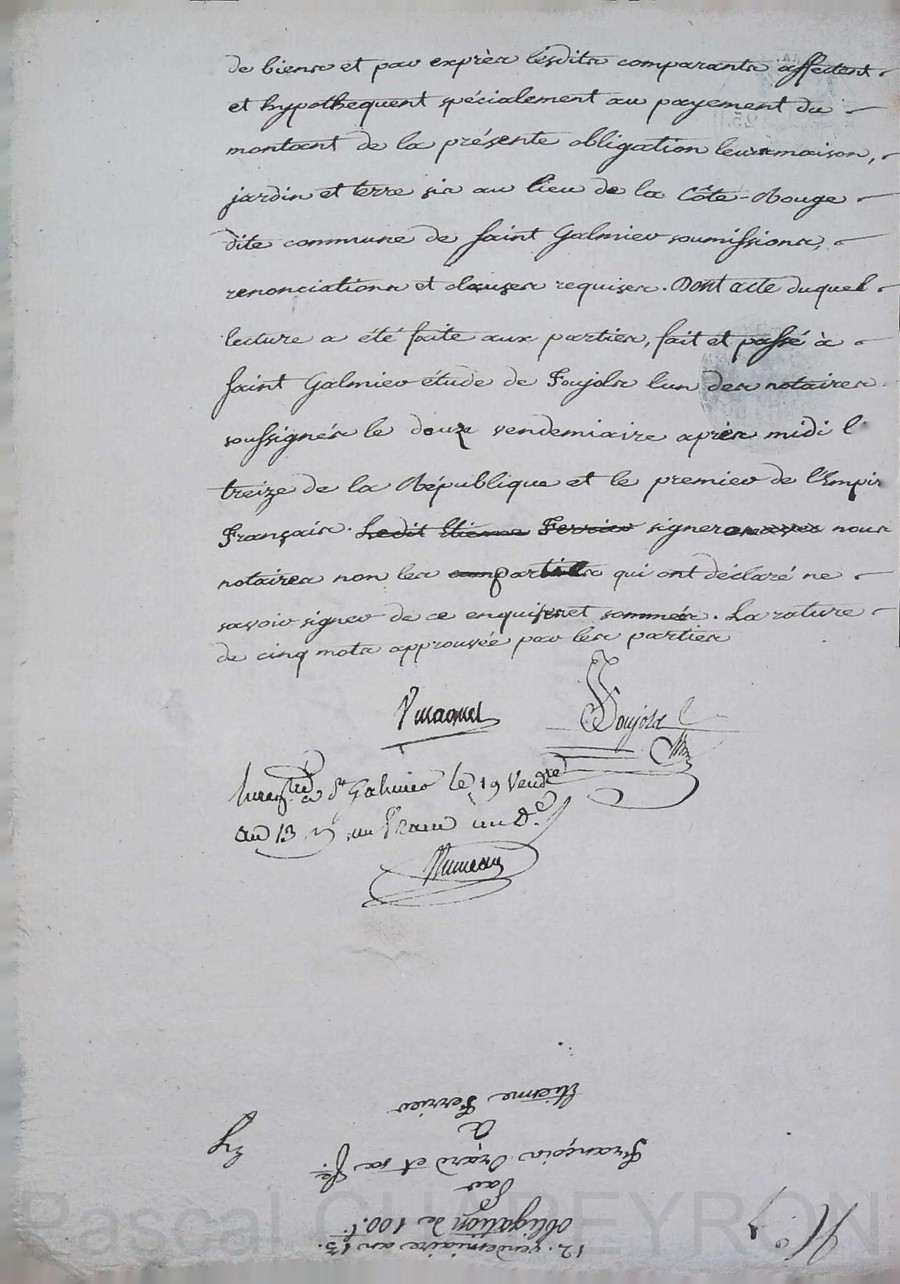 de biens et par exprès lésdits comparants affectent
et hypothequent spécialement au payement du
montant de la présente obligation leurs maison,
jardin et terre sis au lieu de la Côte-Rouge
dite commune de Saint Galmier soumissions,
renonciations et clauses requises. Dont acte duquel
lecture a été faite aux parties, fait et passé à
Saint Galmier étude de Foujols lun des notaires
soussignés le douze vendemiaire après midi l'
treize de la République et le premier de l'Empir
Français. Ledit Etienne Ferrier signer nous
notaires non les parties qui ont déclaré ne
savoir signer de ce enquis et sommés. La rature
de cinq mots approuvée par les parties
Foujols
St Galmier le 19 Vendre
an 13 un franc un de
12. vendemiaire an 13.
obligation de 100.
Par
François Orard et sa fe.
A
Etienne Ferrier
Pascal CHAPEYRON